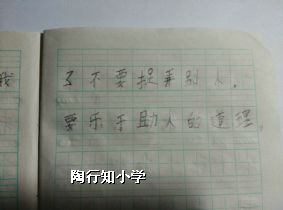 我
了不要捉弄别人,
要乐于助人的道理。
陶行知小学